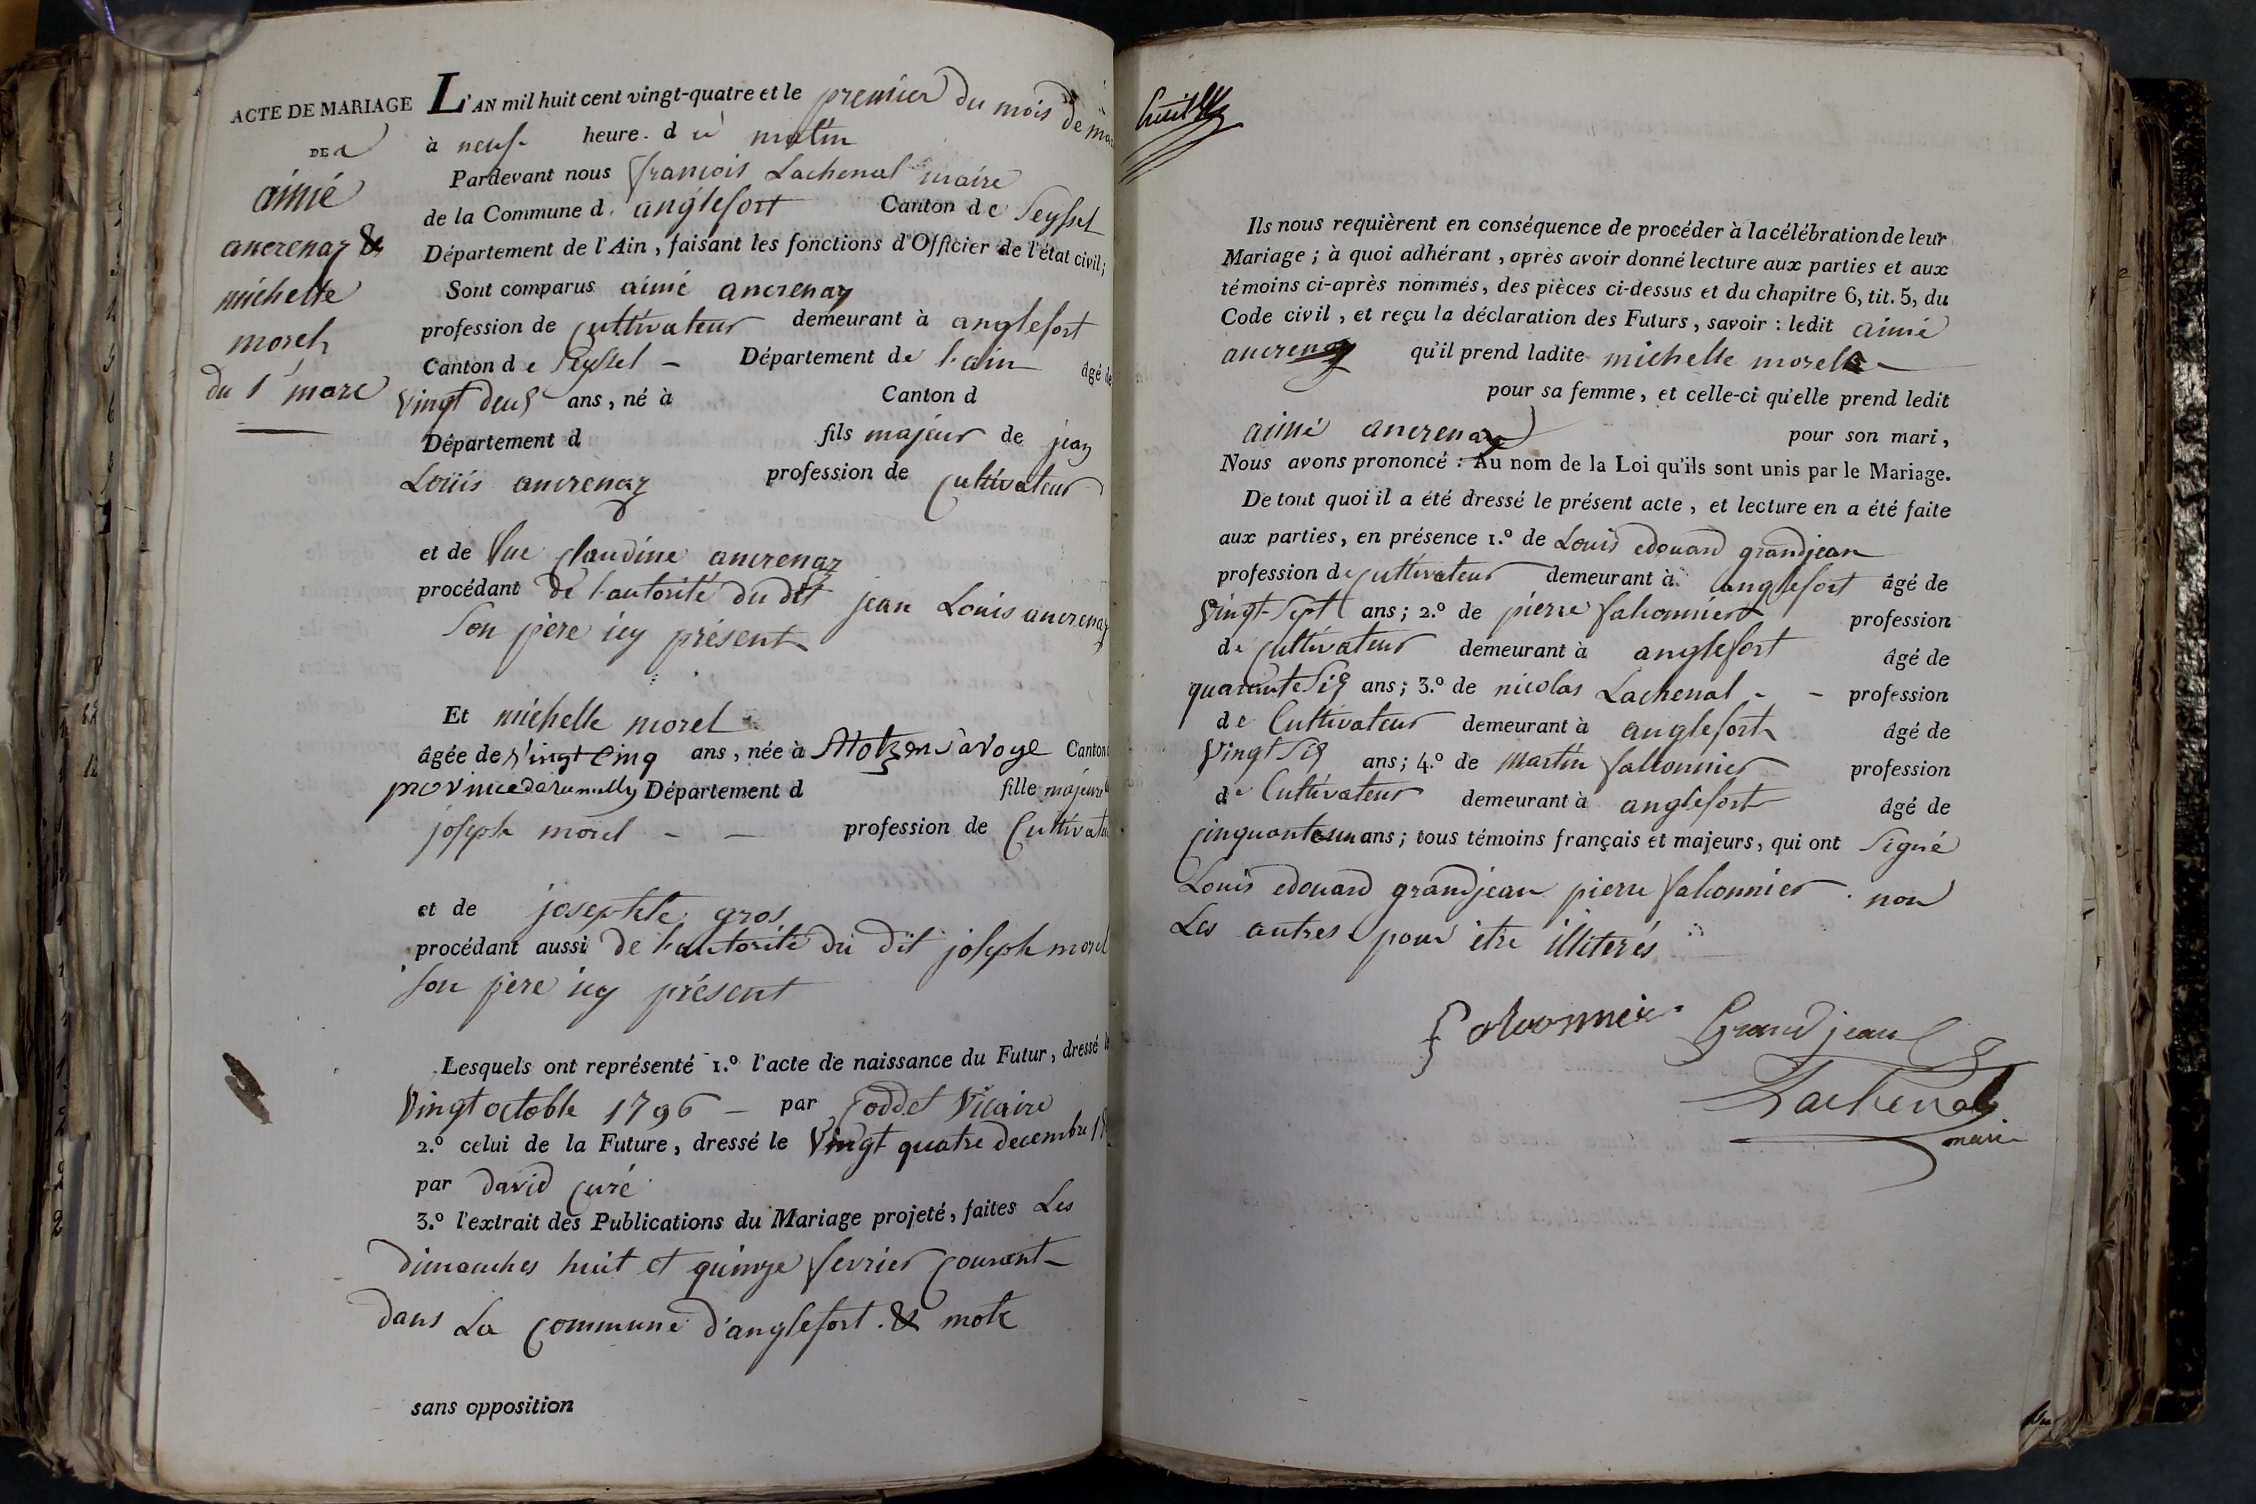 ACTE DE MARIAGE
DE
aimé
ancrenaz &
michelle
morel
du 1 marc
L'AN mil huit cent vingt-quatre et le premier du mois de
à neuf heure. du matin
Pardevant nous francois Lachenal maire
de la Commune d. anglefort Canton de Seyssel
Département de l'Ain, faisant les fonctions d'Officier de l'état civil;
Sont comparus aimé ancrenaz
profession de cultivateur demeurant à anglefort
Canton de Seyssel - Département de l'ain âgé de
vingt deux ans, né à Canton d
Département d fils majeur de jean
Loüis ancrenaz profession de cultivateur
et de claudine ancrenaz
procédant de l'autorité du dit jean Louis ancrenaz
son père icy présent
Et michelle morel
âgée de vingt cinq ans, née à Motz en Savoye Canton
province de rumilly Département d fille majeure
joseph morel - - profession de
et de josephte gros
procédant aussi de l'autorité du dit joseph morel
son père icy présent
Lesquels ont représenté 1.º l'acte de naissance du Futur, dressé le
vingt octobre 1796 - par Vicaire
2.º celui de la Future, dressé le vingt quatre decembre
par david curé
3.º l'extrait des Publications du Mariage projeté, faites Les
dimanches huit et quinze fevrier courant
dans La commune d'anglefort. & motz
sans opposition
Ils nous requièrent en conséquence de procéder à la célébration de leur
Mariage; à quoi adhérant, après avoir donné lecture aux parties et aux
témoins ci-après nommés, des pièces ci-dessus et du chapitre 6, tit. 5, du
Code civil, et reçu la déclaration des Futurs, savoir: ledit aimé
ancrenaz qu'il prend ladite michelle morel
pour sa femme, et celle-ci qu'elle prend ledit
aimé ancrenaz pour son mari,
Nous avons prononcé: Au nom de la Loi qu'ils sont unis par le Mariage.
De tout quoi il a été dressé le présent acte, et lecture en a été faite
aux parties, en présence 1.º de Louis edouard grandjean
profession de cultivateur demeurant à anglefort âgé de
vingt-sept ans; 2.º de pierre falconnier profession
de cultivateur demeurant à anglefort âgé de
quarante six ans; 3.º de nicolas Lachenal - - profession
de Cultivateur demeurant à anglefort âgé de
vingt six ans; 4.º de martin falconnier profession
de Cultivateur demeurant à anglefort âgé de
cinquante un ans; tous témoins français et majeurs, qui ont signé
Louis edouard grandjean pierre falconnier. non
Les autres pour être illiterés
falconnier Grandjean
Lachenal
maire